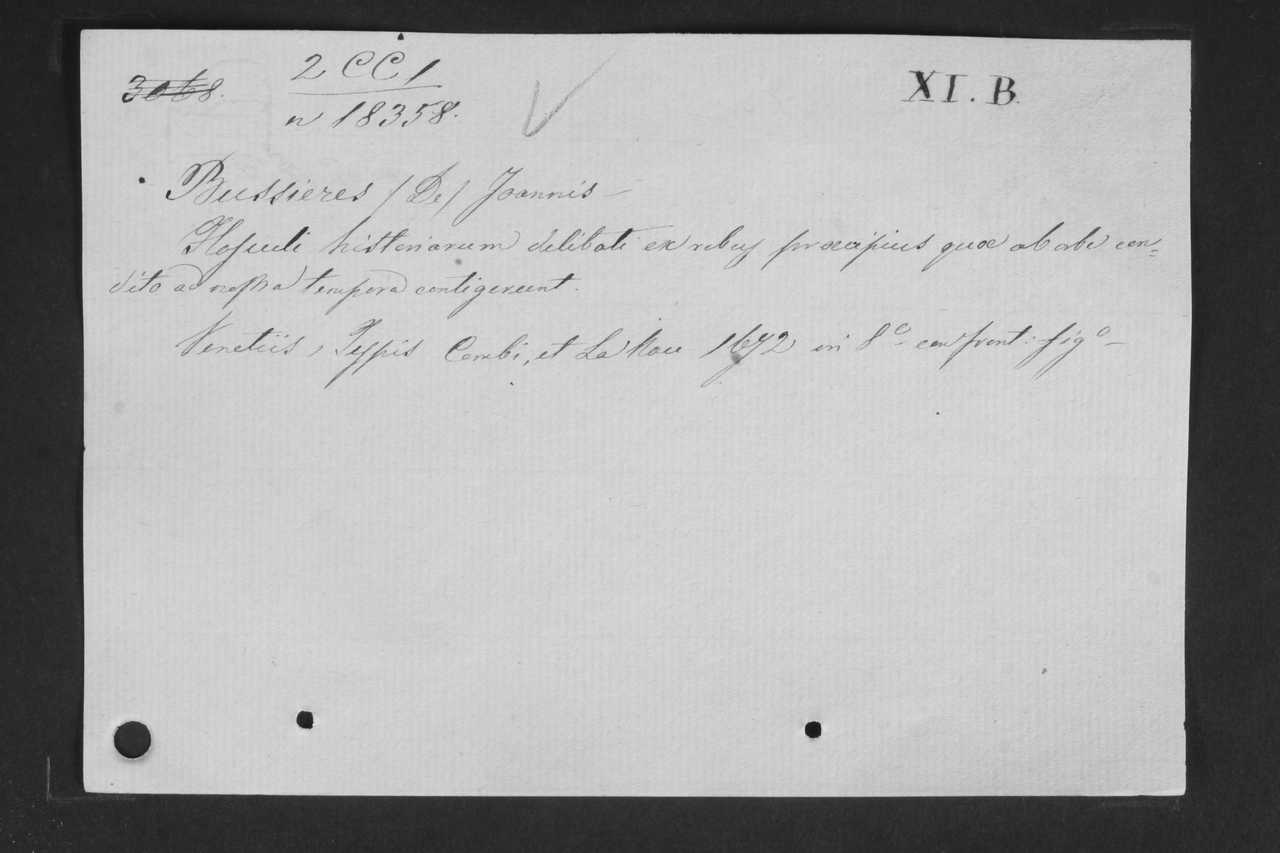 3068.
2 CC 1
n 18358.
XI. B.
Bussieres /De/ Joannis -
Flosculi historiarum delibati ex rebus præcipius quæ ab orbe con=
dito ad nostra tempora contigerunt.
Venetiis, Typis Combi, et La Nou 1672 in 8.º con front: fig.º -